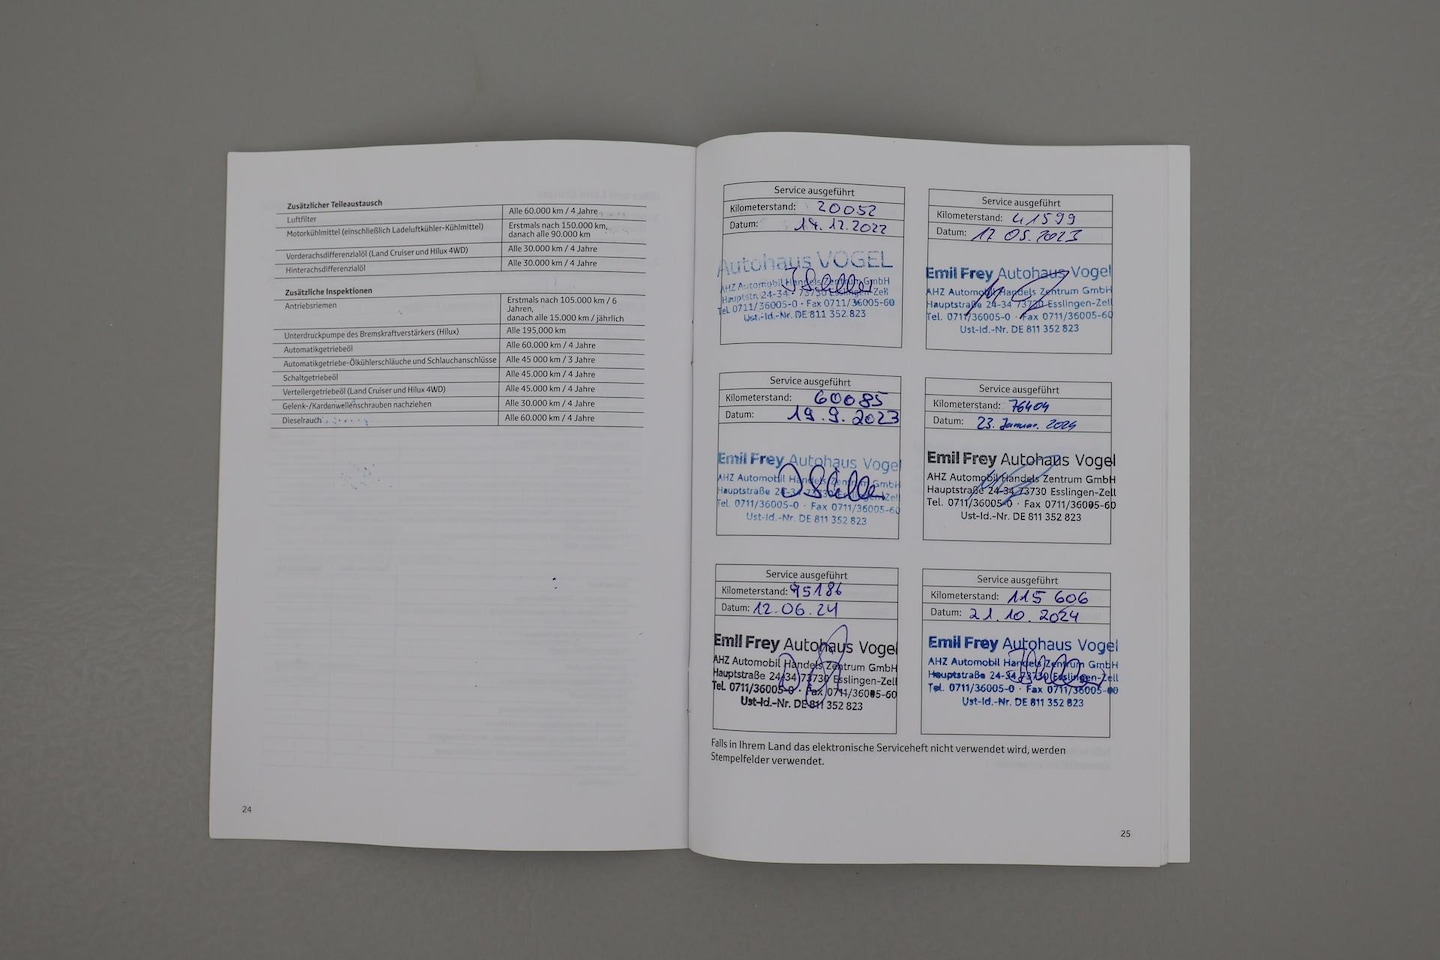 Zusätzlicher Teileaustausch
Luftfilter Alle 60.000 km / 4 Jahre
Motorkühlmittel (einschließlich Ladeluftkühler-Kühlmittel) Erstmals nach 150.000 km,
danach alle 90.000 km
Vorderachsdifferenzialöl (Land Cruiser und Hilux 4WD) Alle 30.000 km / 4 Jahre
Hinterachsdifferenzialöl Alle 30.000 km / 4 Jahre
Zusätzliche Inspektionen
Antriebsriemen Erstmals nach 105.000 km / 6
Jahren,
danach alle 15.000 km / jährlich
Unterdruckpumpe des Bremskraftverstärkers (Hilux) Alle 195,000 km
Automatikgetriebeöl Alle 60.000 km / 4 Jahre
Automatikgetriebe-Ölkühlerschläuche und Schlauchanschlüsse Alle 45 000 km / 3 Jahre
Schaltgetriebeöl Alle 45.000 km / 4 Jahre
Verteilergetriebeöl (Land Cruiser und Hilux 4WD) Alle 45.000 km / 4 Jahre
Gelenk-/Kardanwellenschrauben nachziehen Alle 30.000 km / 4 Jahre
Dieselrauch Alle 60.000 km / 4 Jahre
24
Service ausgeführt
Kilometerstand: 20052
Datum: 14.12.2022
Autohaus VOGEL
AHZ Automobil Handels Zentrum GmbH
Hauptstr. 24-34 · 73730 Esslingen-Zell
Tel. 0711/36005-0 · Fax 0711/36005-60
Ust.-Id.-Nr. DE 811 352 823
Service ausgeführt
Kilometerstand: 41599
Datum: 17 05.2023
Emil Frey Autohaus Vogel
AHZ Automobil Handels Zentrum GmbH
Hauptstraße 24-34 73730 Esslingen-Zell
Tel. 0711/36005-0 · Fax 0711/36005-60
Ust-Id.-Nr. DE 811 352 823
Service ausgeführt
Kilometerstand: 60085
Datum: 19.9.2023
Emil Frey Autohaus Vogel
AHZ Automobil Handels Zentrum GmbH
Hauptstraße 24-34 73730 Esslingen-Zell
Tel. 0711/36005-0 · Fax 0711/36005-60
Ust-Id.-Nr. DE 811 352 823
Service ausgeführt
Kilometerstand: 76404
Datum: 23. Januar. 2024
Emil Frey Autohaus Vogel
AHZ Automobil Handels Zentrum GmbH
Hauptstraße 24-34 73730 Esslingen-Zell
Tel. 0711/36005-0 · Fax 0711/36005-60
Ust-Id.-Nr. DE 811 352 823
Service ausgeführt
Kilometerstand: 95186
Datum: 12.06.24
Emil Frey Autohaus Vogel
AHZ Automobil Handels Zentrum GmbH
Hauptstraße 24-34 73730 Esslingen-Zell
Tel. 0711/36005-0 · Fax 0711/36005-60
Ust-Id.-Nr. DE 811 352 823
Service ausgeführt
Kilometerstand: 115 606
Datum: 21.10.2024
Emil Frey Autohaus Vogel
AHZ Automobil Handels Zentrum GmbH
Hauptstraße 24-34 73730 Esslingen-Zell
Tel. 0711/36005-0 · Fax 0711/36005-60
Ust-Id.-Nr. DE 811 352 823
Falls in Ihrem Land das elektronische Serviceheft nicht verwendet wird, werden
Stempelfelder verwendet.
25